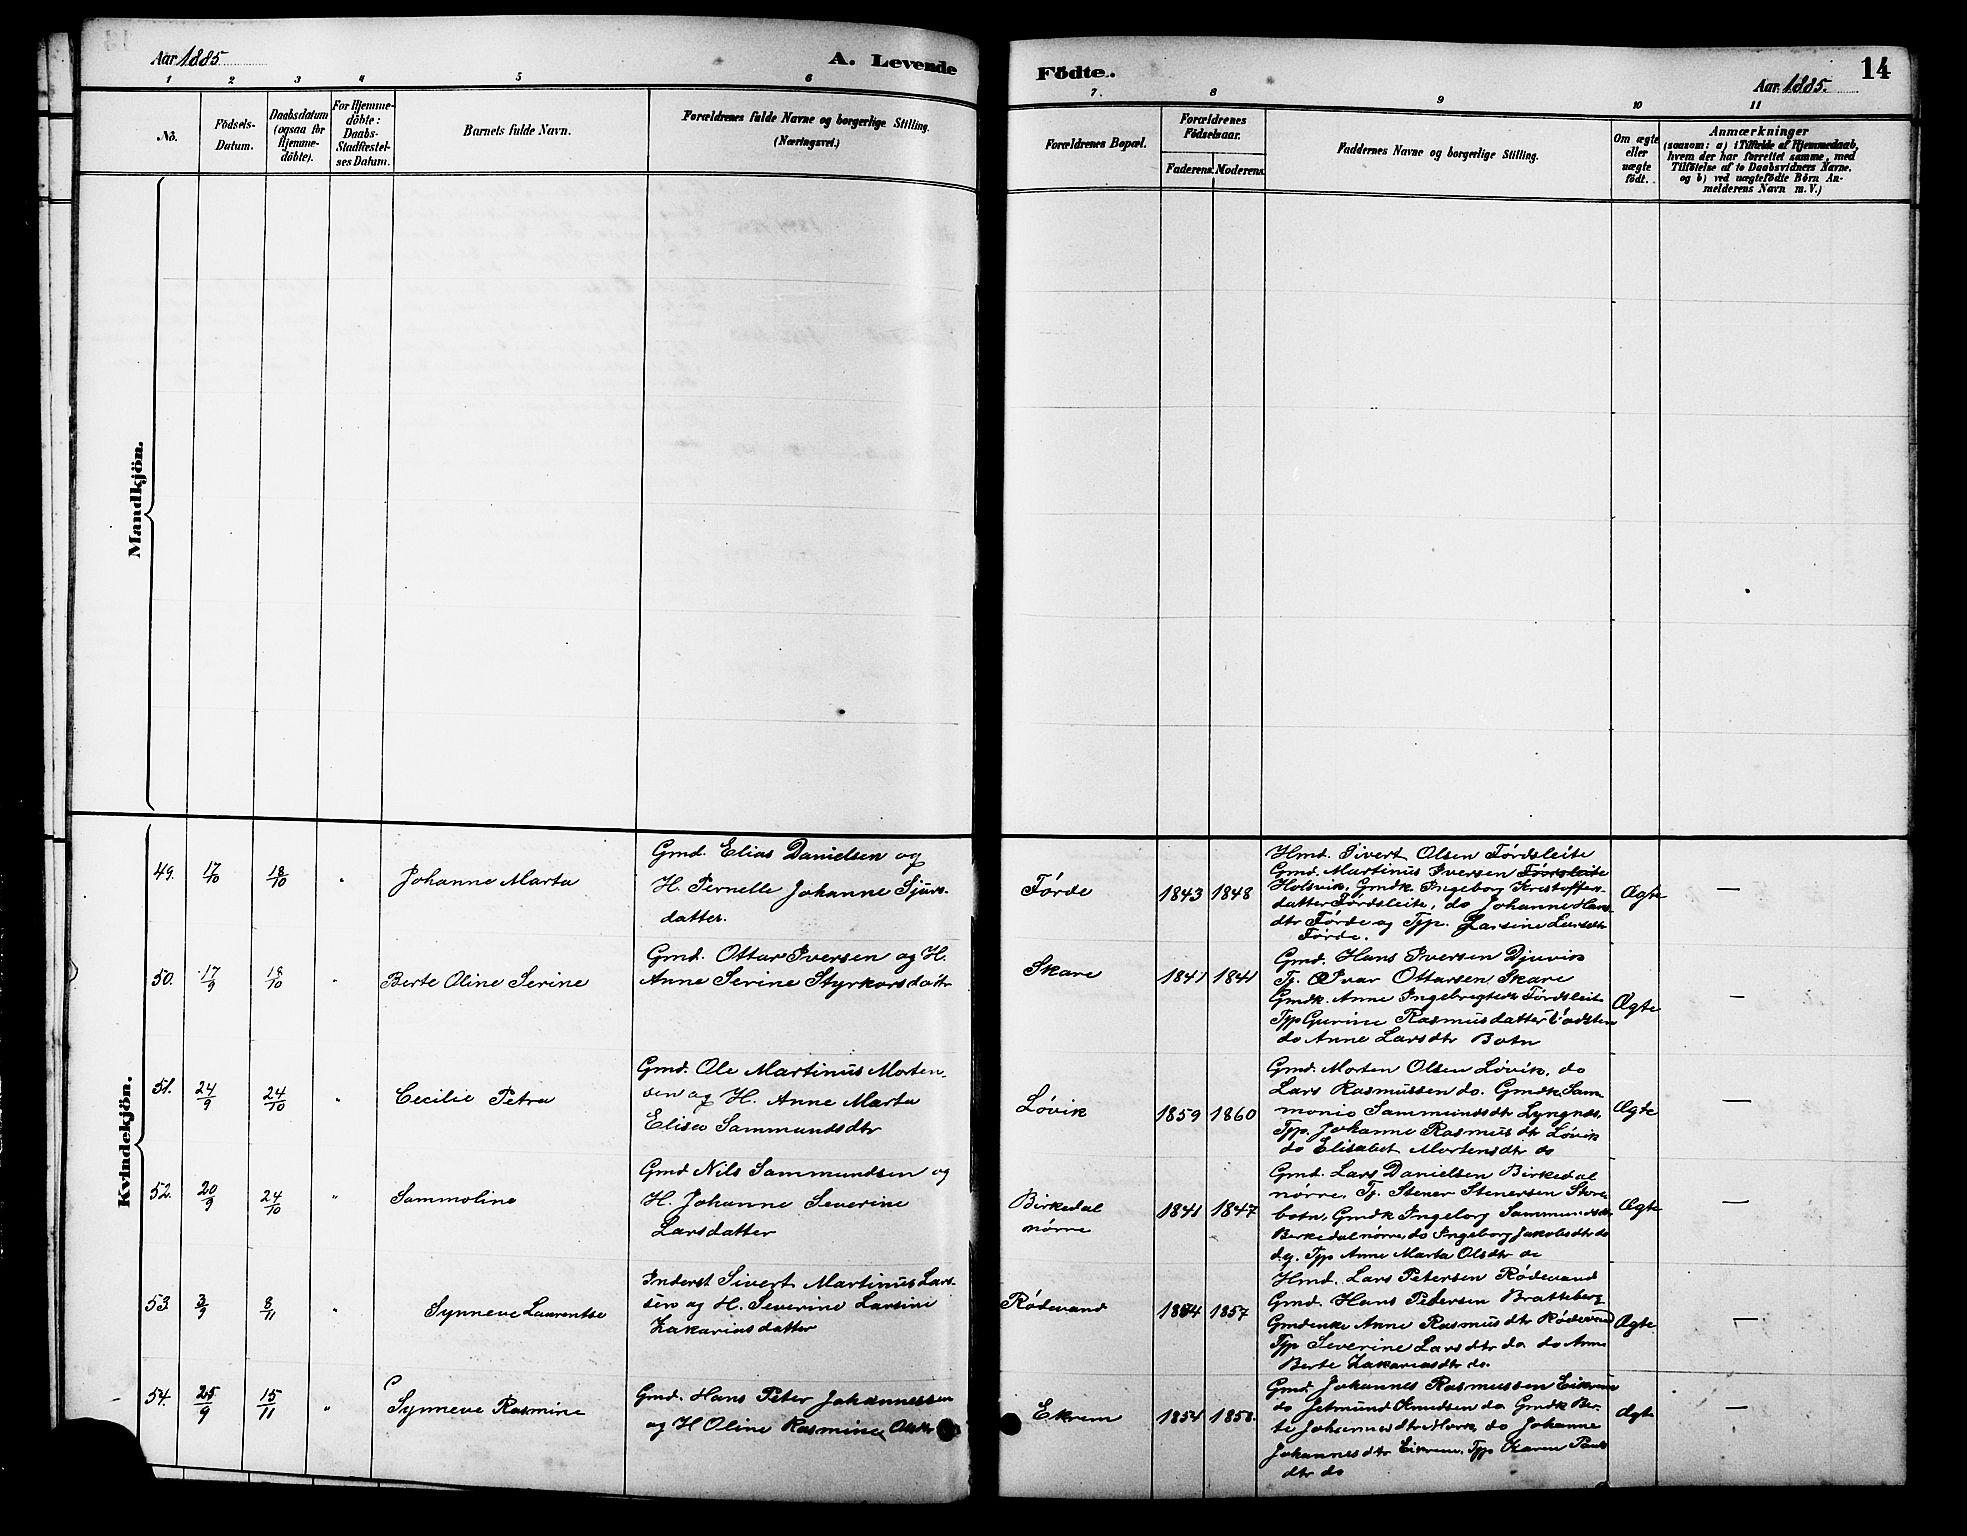 Aar 1885
A. Levende
Fødte.
Aar 1885.
14
1 2 3 4 5 6 7. 8 9 10 11
No.
Födsels-
Datum.
Daabsdatum
(ogsaa for
Hjemme-
döbte).
For Hjemme-
döbte:
Daabs-
Stadfæstel-
ses Datum.
Barnets fulde Navn.
Forældrenes fulde Navne og borgerlige Stilling.
(Næringsvei.)
Forældrenes Bopæl.
Forældrenes
Födselsaar.
Faderens. Moderens.
Faddernes Navne og borgerlige Stilling.
Om ægte
eller
uægte
födt.
Anmærkninger
(saasom: a) i Tilfælde af Hjemmedaab,
hvem der har forrettet samme, med
Tilföielse af to Daabsvidners Navne,
og b) ved uægtefödte Börn An-
melderens Navn m. V.)
Mandkjön.
Kvindekjön.
49. 17/10 18/10 " Johanne Marta
Gmd. Elias Danielsen og
H. Pernelle Johanne Sjurs-
datter.
Førde 1843 1848
Hmd. Sivert Olsen Førdsleite
Gmd. Martinus Iversen Førdsleite
Holsvik, Gmdk. Ingeborg Kristoffer-
datter Førdsleite, do Johanne Hans
dtr Førde og Typ. Larsine Larsdtr
Førde.
Ægte —
50. 17/9 18/10 " Berte Oline Serine
Gmd. Ottar Iversen og H.
Anne Serine Styrkorsdattr
Skare 1841 1841
Gmd. Hans Iversen Djuvik
Tj. Ivar Ottarsen Skare
Gmdk. Anne Ingebrigtsdtr Førdsleit
Typ Gurine Rasmusdatter
do Anne Larsdtr Botn
Ægte —
51. 24/9 24/10 " Cecilie Petra
Gmd. Ole Martinus Morten-
sen og H. Anne Marta
Elisa Sammundsdtr
Løvik 1859 1860
Gmd. Morten Olsen Løvik, do
Lars Rasmussen do. Gmdk Sam-
monie Sammundsdtr Lyngnes,
Typ. Johanne Rasmusdtr Løvik
do Elisabet Mortensdtr do
Ægte —
52. 20/9 24/10 " Sammoline
Gmd Nils Sammundsen og
H. Johanne Severine
Larsdatter
Birkedal
nørre 1841 1847
Gmd. Lars Danielsen Birkedal
nørre, Tj. Stener Stenersen Store
botn, Gmdk Ingeborg Sammundsdtr
Berkedal nørre, do Ingeborg Jakobsdtr do
d.g. Typ Anne Marta Olsdtr do
Ægte —
53. 3/9 8/11 " Synneve Laurentse
Inderst Sivert Martinus Lars-
sen og H. Severine Larsine
Zakariasdatter
Rødevand 1854 1857
Hmd. Lars Petersen Rødevand
Gmd. Hans Pedersen Bratteberg
Gmdenke Anne Rasmusdtr Rødevand
Typ Severine Larsdtr do do Anne
Berte Zakariasdtr do.
Ægte —
54. 25/9 15/11 " Synneve Rasmine
Gmd. Hans Peter Johannessen
og H Oline Rasmine Olsdtr
Ekrem 1854 1858.
Gmd Johannes Rasmussen Eikrem
do Jetmund Knudsen do. Gmdk Ber-
te Johannesdtr Mork, do Johanne
Johannesdtr Eikrem, Typ Karen Pauls
dtr do
Ægte —